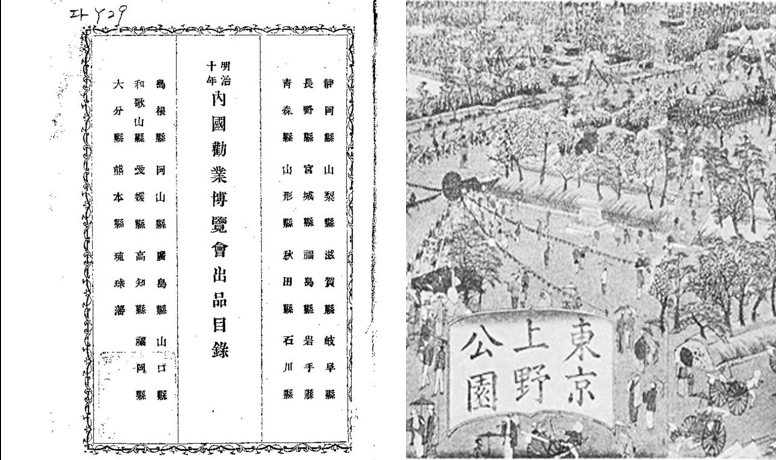 靜岡縣 山梨縣 滋賀縣 岐阜縣
長野縣 宮城縣 福島縣 岩手縣
靑森縣 山形縣 秋田縣 石川縣
明治
十年
內國勸業博覽會出品目錄
島根縣 岡山縣 廣島縣 山口縣
和歌山縣 愛媛縣 高知縣 福岡縣
大分縣 熊本縣 琉球藩
東京
上野
公園